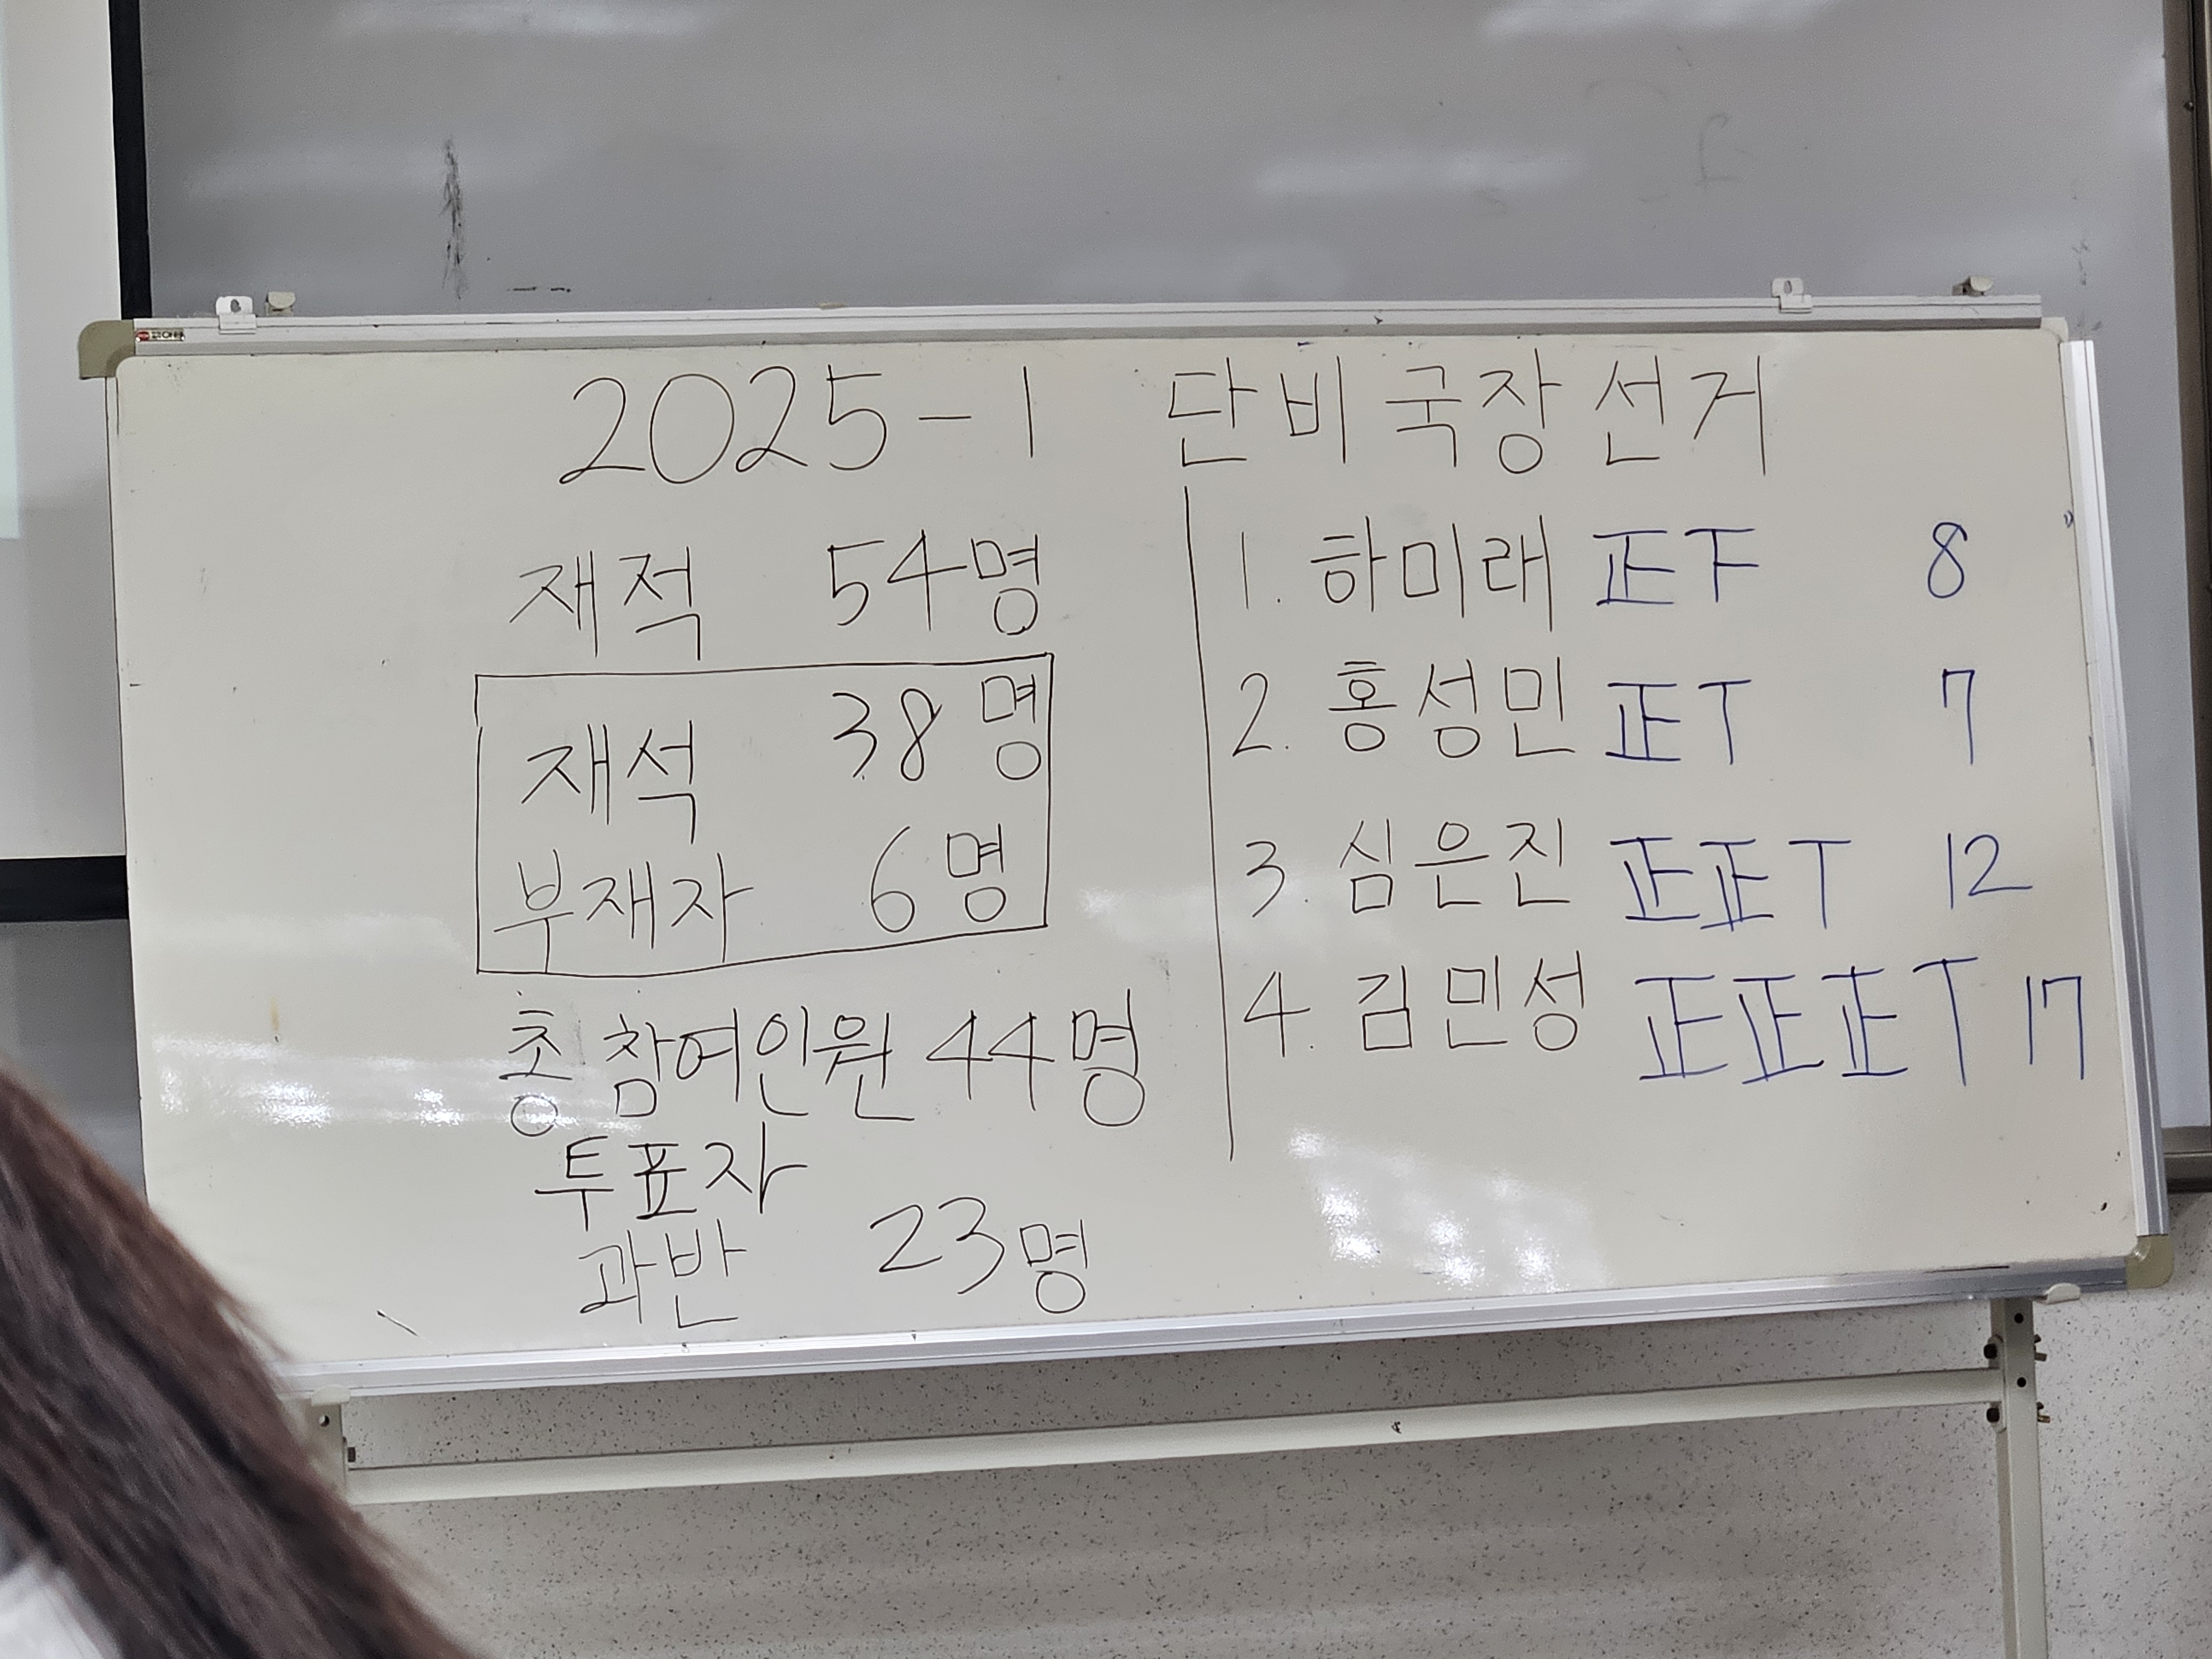 2025-1 단비 국장 선거
재적 54명
재석 38명
부재자 6명
총 참여인원 44명
투표자
과반 23명
1. 하미래 正下 8
2. 홍성민 正T 7
3. 심은진 正正T 12
4. 김민성 正正正T 17